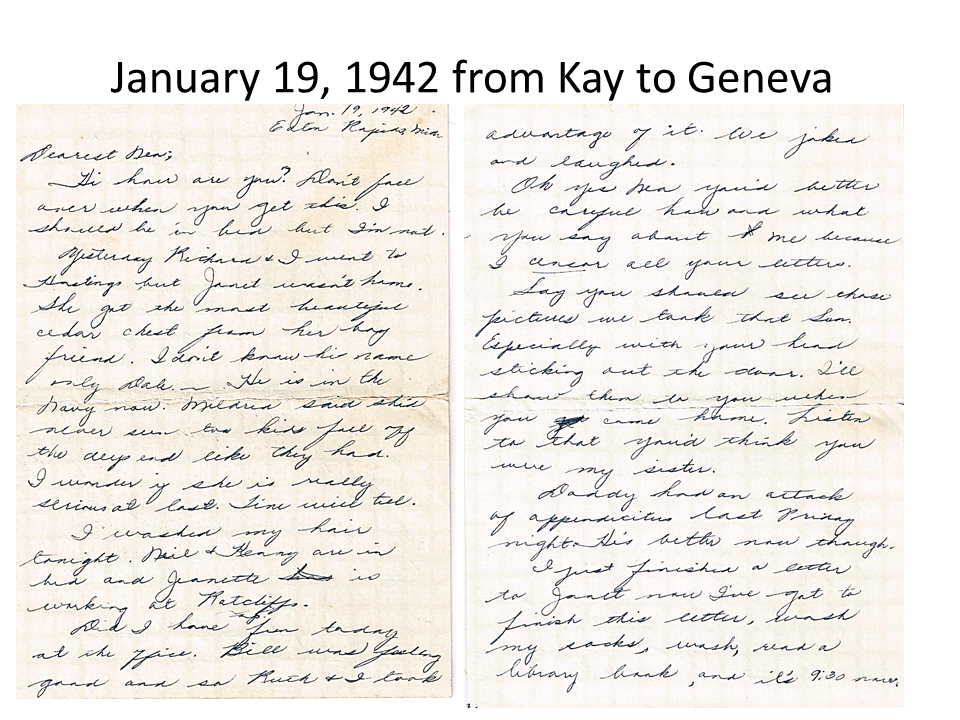 January 19, 1942 from Kay to Geneva
Jan. 19, 1942
Eaton Rapids, Mich
Dearest Nea;
Hi how are you? Don't face
over when you get this. I
should be in bed but I'm not.
Yesterday Richard & I went to
Hastings but Janet wasn't home.
She got the most beautiful
cedar chest from her boy
friend. I don't know his name
only Dale. ~ He is in the
Navy now. Mildred said she'd
never seen two kids fall off
the deep end like they had.
I wonder if she is really
serious at last. Time will tell.
I washed my hair
tonight. & Kenny are in
bed and Jeanette is
working at Ratcliffs.
Did I have fun today
at the office. Bill was feeling
good and so Ruth & I took
advantage of it. We joked
and laughed.
Oh yes Nea you'd better
be careful how and what
you say about me because
I censor all your letters.
Say you should see those
pictures we took that Sun.
Especially with your head
sticking out the door. I'll
show them to you when
you come home. Listen
to that you'd think you
were my sister.
Daddy had an attack
of appendicitus last Friday
night. He's better now though.
I just finished a letter
to Janet now I've got to
finish this letter, wash
my socks, wash, read a
library book, and it's 9:30 now.